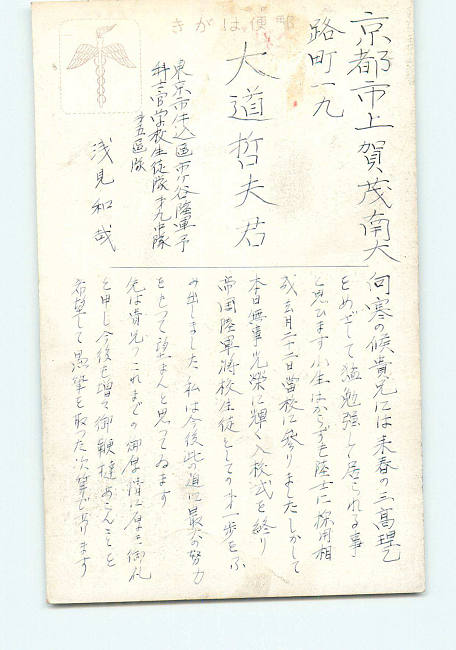 郵便はがき
京都市上賀茂南大
路町一九
大道哲夫君
東京市牛込區市ヶ谷陸軍予
科士官学校生徒隊第九中隊
第五區隊
浅見和哉
向寒の候貴兄には来春の三高理乙
をめざして猛勉強して居られる事
と思ひます小生はからずも陸士に採用相
成去月二十二日當校に参りましたしかして
本日無事光榮に輝く入校式を終り
帝国陸軍将校生徒としての第一歩をふ
み出しました私は今後此の道に最大努力
をもって望まんと思ってゐます
先は貴兄のこれまでの御厚情に厚き御礼
を申し今後も増々御鞭撻あらんことを
希望して愚筆を取った次第であります